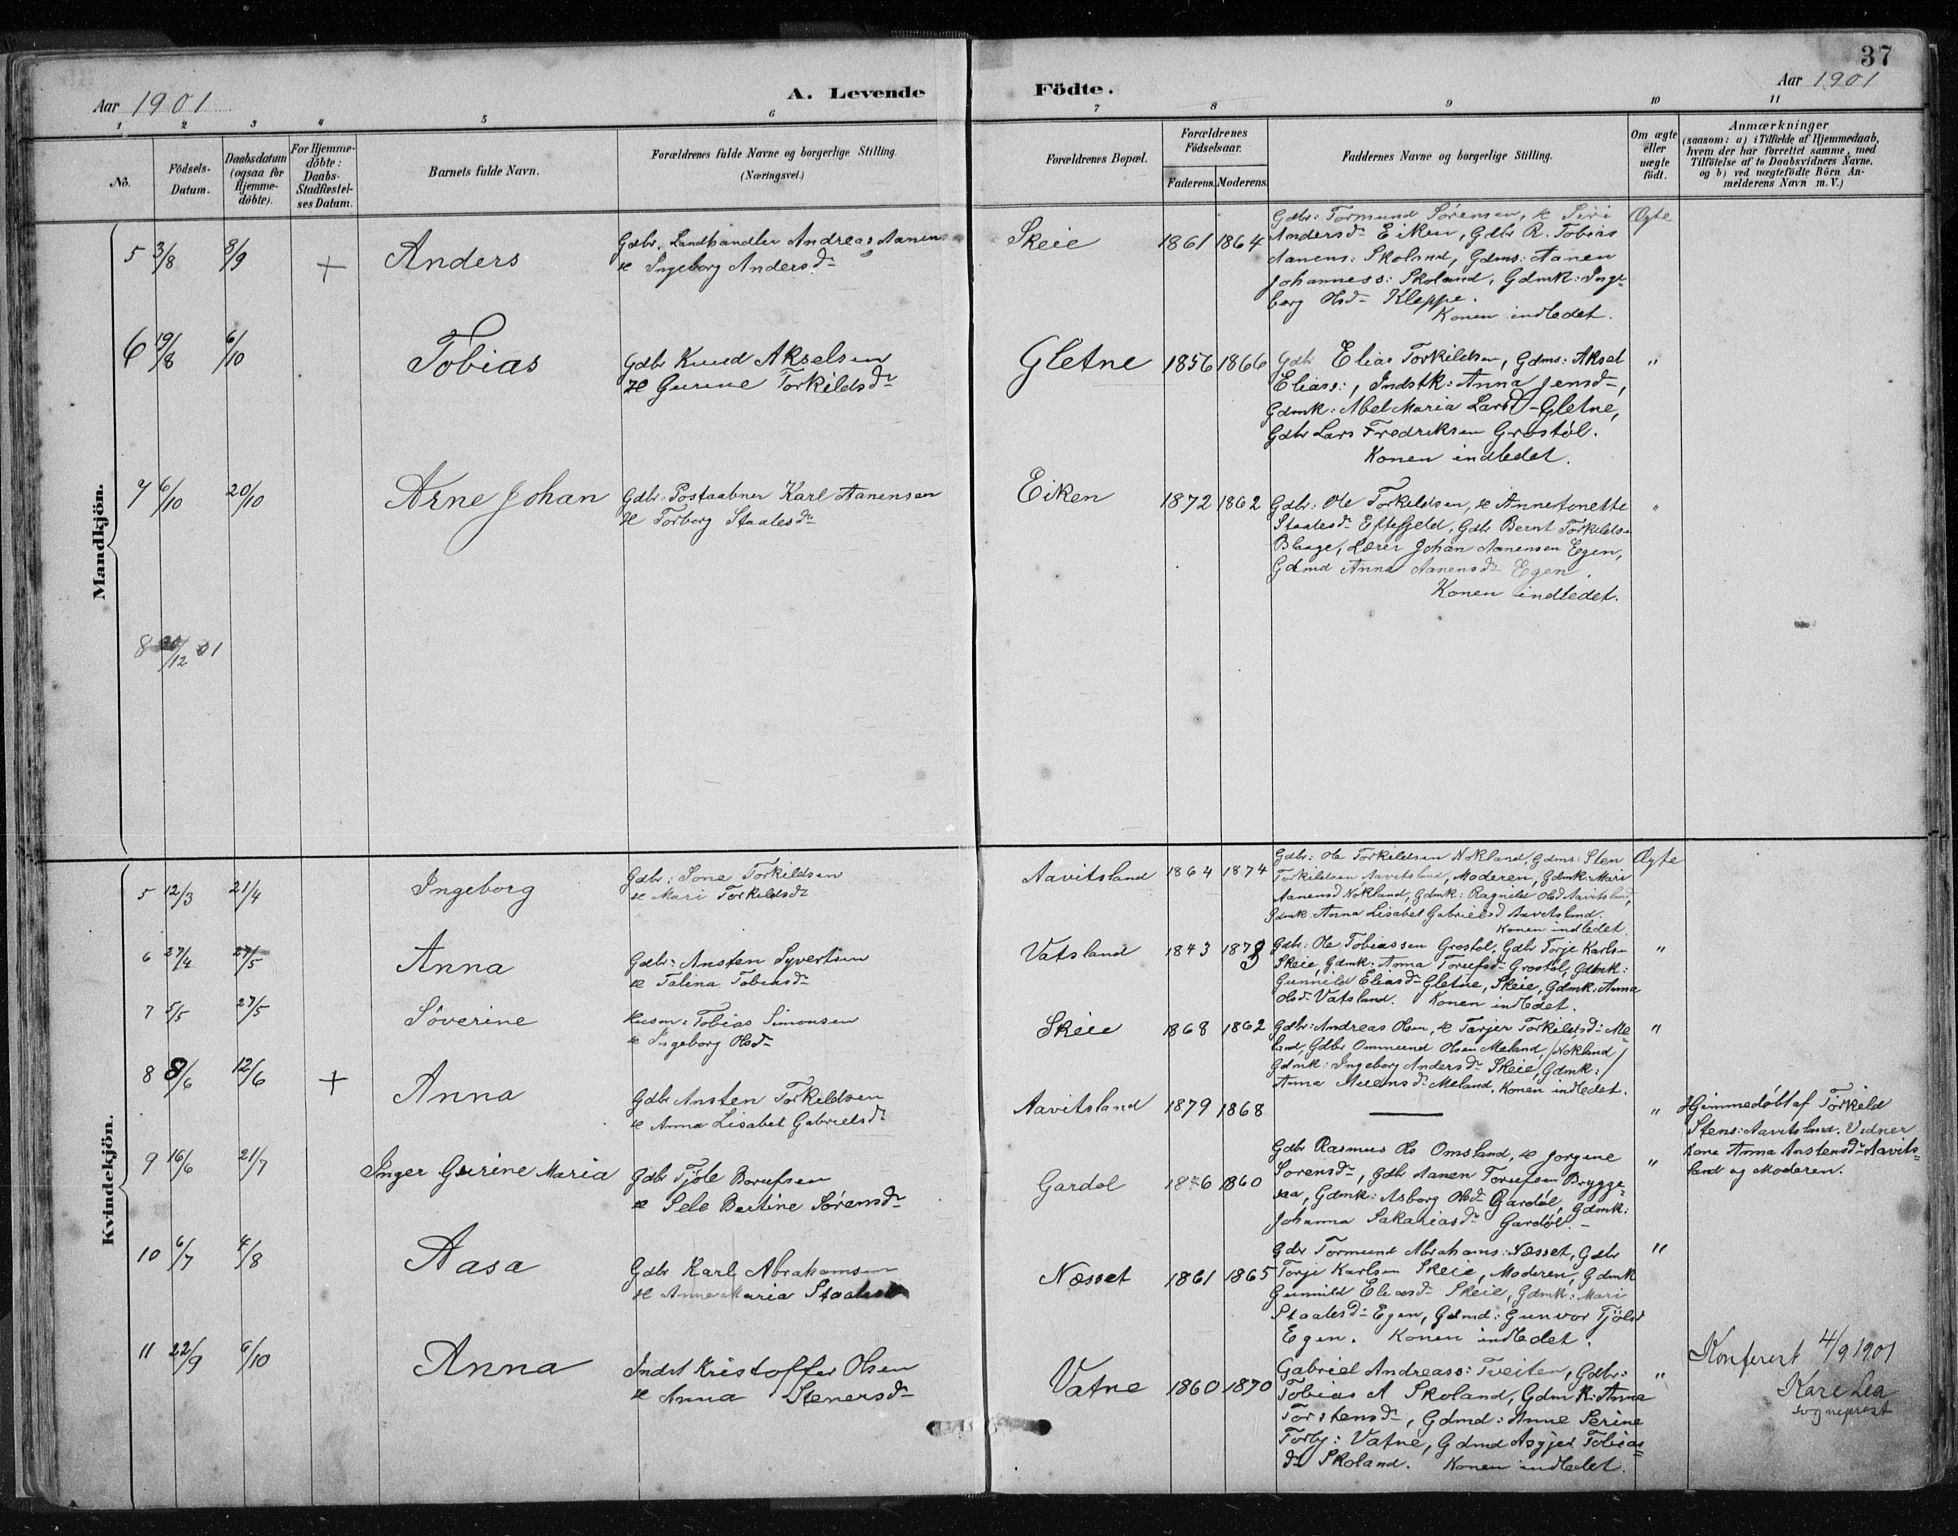 37
Aar 1901
A. Levende Födte.
Aar 1901
1 2 3 4 5 6 7 8 9 10 11
No.
Födsels-
Datum.
Daabsdatum
(ogsaa for
Hjemme-
döbte).
For Hjemme-
döbte:
Daabs-
Stadfæstel-
ses Datum.
Barnets fulde Navn.
Forældrenes fulde Navne og borgerlige Stilling.
(Næringsvei.)
Forældrenes Bopæl.
Forældrenes
Födselsaar.
Faderens. Moderens.
Faddernes Navne og borgerlige Stilling.
Om ægte
eller
uægte
födt.
Anmærkninger
(saasom: a) i Tilfælde af Hjemmedaab,
hvem der har forrettet samme, med
Tilföielse af to Daabsvidners Navne,
og b) ved uægtefödte Börn An-
melderens Navn m. V.)
Mandkjön.
5 3/8 8/9 + Anders
Gdbr. Landhandler Andreas Aanen
H Ingeborg Andersdr
Skeie 1861 1864
Gdbr: Tormund Sørensen, H Siri
Andersdr Eiken, Gdbr R. Tobias
Aanens: Skoland, Gdms: Aanen
Johanness: Skoland, Gdmk: Inge-
borg Olsdr Kleppe.
Konen indledet.
Ægte
6 19/8 6/10 Tobias
Gdbr Knud Akselsen
H Gurine Torkildsdr
Gletne 1856 1866
Gdbr Elias Torkildsen, Gdms: Aksel
Eliass:, Indstk: Anna Jensdr,
Gdmk: Abel Maria Larsdr Gletne,
Gdbr Lars Fredriksen Grostöl.
Konen indledet.
"
7 6/10 20/10 Arne Johan
Gdbr: Postaabner Karl Aanensen
H Torborg Staalesdr
Eiken 1872 1862
Gdbr: Ole Torkildsen, H Annetonette
Staalesdr Eftestjeld, Gdbr Bernt Torkildsen
Blaage, Lærer Johan Aanensen Egen,
Gdmd Anna Aanensdr Egen.
Konen indledet.
"
8 /12 01
Kvindekjön.
5 12/3 21/4 Ingeborg
Gdbr: Sone Torkildsen
H Mari Torkildsdr
Aavitsland 1864 1874
Gdbr: Ole Torkildsen Nokland, Gdms: Sten
Torkildsen Aavitsland, Moderen, Gdmk: Mari
Aanensd Nokland, Gdmk: Ragnild Olsd Aavitsland,
Gdmk: Anna Lisabet Gabrielsd Aavitsland.
Konen indledet.
Ægte
6 27/4 27/5 Anna
Gdbr: Ansten Syvertsen
H Talina Tobiasdr
Vatsland 1843 1873
Gdbr: Ole Tobiassen Grostöl, Gdbr Torje Karlsen
Skeie, Gdmk: Anna Torufsdr Grostöl, Gdmk:
Gunnild Eliasdr Gletne, Skeie, Gdmk: Anna
Olsdr Vatsland. Konen indledet.
"
7 5/5 27/5 Söverine
Husm: Tobias Simonsen
H Ingeborg Olsdr
Skeie 1868 1862
Gdbr: Andreas Olsen, H Tarjer Torkildsdr Me-
land, Gdbr Ommund Olsen Meland, /Nokland/
Gdmk: Ingeborg Andersdr Skeie, Gdmk:
Anna Meensdr Meland. Konen indledet.
"
8 8/6 12/6 + Anna
Gdbr Ansten Torkildsen
H Anna Lisabet Gabrielsdr
Aavitsland 1879 1868
"
Hjemmedöbt af Torkild
Stens: Aavitsland. Vidner
Kone Anna Anstensdr Aavits-
land og Moderen.
9 16/6 21/7 Inger Gurine Maria
Gdbr Tjöle Borufsen
H Sele Bertine Sörensdr
Gardöl 1876 1860
Gdbr Rasmus Ols Omsland, H Jorgine
Sorensdr, Gdbr Aanen Torufsen Brygge-
saa, Gdmk: Asborg Olsdr Gardöl, Gdmk:
Johanna Sakariasdr Gardöl.
"
10 6/7 4/8 Aasa
Gdbr Karl Abrahamsen
H Anne Maria Staalesd
Næsset 1861 1865
Gdbr Tormund Abrahams: Næsset, Gdbr
Torje Karlsen Skeie, Moderen, Gdmk
Gunnild Eliasdr Skeie, Gdmk: Mari
Staalesdr Egen, Gdmd: Gunvor Tjölsd
Egen. Konen indledet.
"
11 22/9 6/10 Anna
Indst Kristoffer Olsen
H Anna Stenersdr
Vatne 1860 1870
Gabriel Andreass: Tveiten, Gdbr:
Tobias A Skoland, Gdmk: Anna
Torstensdr, Gdmd: Anne Serine
Torbj: Vatne, Gdmd Asgjer Tobias-
dr Skoland. Konen indledet.
"
Konferert 4/9 1901
Kare Lea
sogneprest